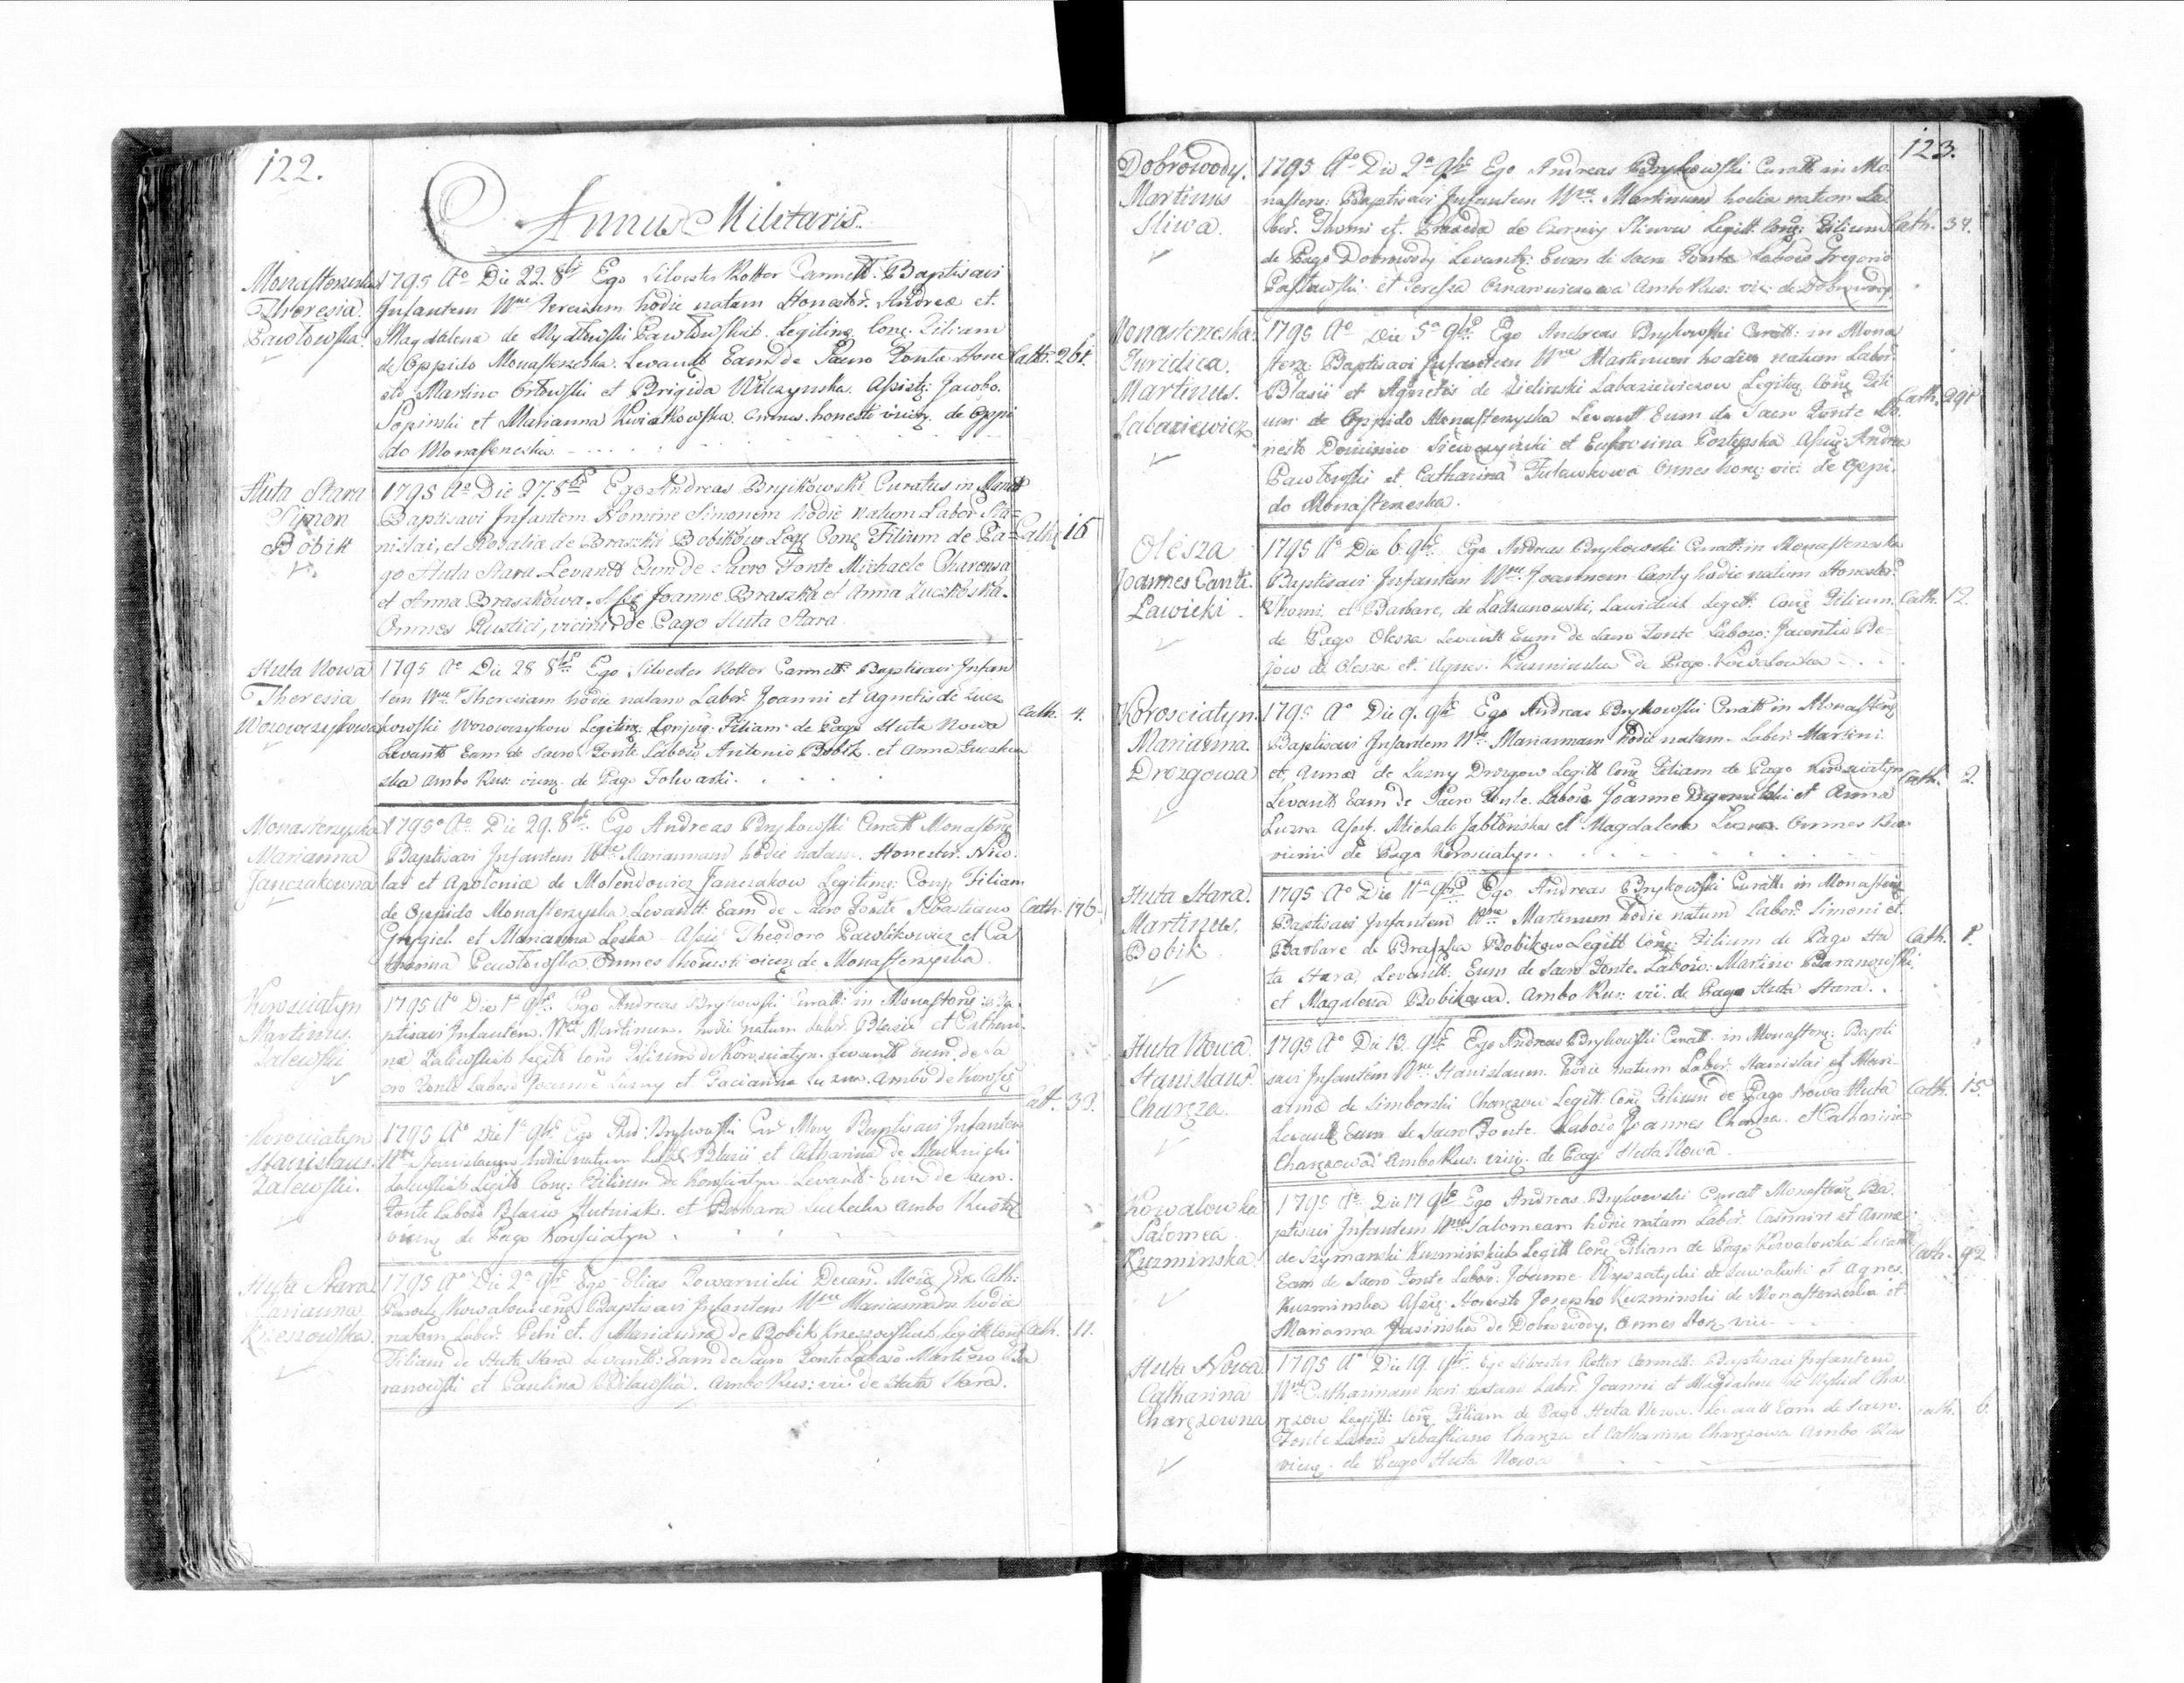 122.
Annus Militaris.
Monasterzeska
Theresia.
Pawłowska.
1795 Ao Die 22. 8bris Ego Silvester Rotter Carmelit. Baptisavi
Infantem Nne Teresiam hodie natam Honestor. Andreae et
Magdalena de Mydłowski Pawłowskich Legitimor Conj. Filiam
de Oppido Monasterzeska. Levantt Eam de Sacro Fonte Hone
sto Martino Orłowski et Brigida Wilczynska. Assist: Jacobo
Sopinski et Marianna Kwiatkowska omnes honesti vicin. de Oppi
do Monasterzeska
Cath. 261.
Huta Stara
Simon
Bobik
1795 Ao Die 27. 8bris Ego Andreas Brykowski Curatus in Monast
Baptisavi Infantem Nomine Simonem hodie natum Labor Sta=
nislai, et Rosalia de Braszka Bobikow Leg Conj Filium de Pa=
go Huta Stara Levantt Eum de Sacro Fonte Michaele Charenza
et Anna Braszkowa. Assis Joanne Braszka et Anna Zuczkoska.
Omnes Rustici, vicini de Pago Huta Stara
Cath 16
Huta Nowa
Theresia
1795 Ao Die 28 8bris Ego Silvester Rotter Carmelit Baptisavi Infan
tem Nne Theresiam hodie natam Labor. Joanni et Agnetis de Zucz
kowski Legitim. Conjug. Filiam de Pago Huta Nowa
Levantt Eam de Sacro Fonte Labor Antonio Bobik et Anna Zuczkow
ska ambo Rus: vicin. de Pago Folwarki.
Cath. 4.
Monasterzyska
Marianna
Janczakowna
1795 Ao Die 29. 8bris Ego Andreas Brykowski Curatt Monasterz
Baptisavi Infantem Nne Mariannam hodie natam. Honestor. Nico
lai et Apolonia de Molendowicz Janczakow Legitim: Conj Filiam
de Oppido Monasterzyska Levantt Eam de Sacro Fonte Sebastiano
Grygiel et Marianna Leska Assis Theodoro Pawlikowicz et Ca
tharina Pawłowska Omnes honesti vicin de Monasterzyska
Cath. 176.
Korosciatyn
Martinus.
Zalewski
1795 Ao Die 1a 9bris Ego Andreas Brykowski Curatt: in Monasterz: Ba
ptisavi Infantem Nne Martinum hodie natum Labor. Blasii et Cathari
na Zalewskich Legitt Conj Filium de Korosciatyn Levantt Eum de Sa
cro Fonte Labor Joanne Luzny et Ambo de Korosc
Cath. 33.
Korosciatyn
Stanislaus.
Zalewski.
1795 Ao Die 1a 9bris Ego And: Brykowski Cur Mon Baptisavi Infantem
Nne Stanislaum hodie natum Labor Blasii et Catharina de
Zalewskich Legitt Conj: Filium de Korosciatyn Levantt Eum de Sacro
Fonte Labor Blasio Hutniak et Barbara ambo Rustic
vicin de Pago Korosciatyn
Huta Stara
Marianna
Krzeszowska.
1795 Ao Die 2a 9bris Ego Elias Decan: Baptisavi Infantem Nne Mariannam hodie
natam Labor. Petri et Marianna de Bobik Krzeszowskich Legitt Conj
Filiam de Huta Stara Levantt: Eam de Sacro Fonte Labor Martino Ba
ranowski et Paulina Ambo Rus: vic: de Huta Stara.
Cath. 11.
123.
Dobrowody.
Martinus
Sliwa.
1795 Ao Die 2a 9bris Ego Andreas Brykowski Curatt in Mo
naster: Baptisavi Infantem Nne Martinum hodie natum La
bor. Thomi et de Czorniy Sliwow Legitt Conj: Filium
de Pago Dobrowody Levantt: Eum de Sacro Fonte Labor Gregorio
et Teressa ambo Rus: vic: de Dobrowody
Cath. 34.
Monasterzeska
Juridica.
Martinus.
Labaziewicz
1795 Ao Die 5a 9bris Ego Andreas Brykowski Curatt: in Mona
sterz: Baptisavi Infantem Nne Martinum hodie natum Labor.
Blasii et Agnetis de Zielinski Labaziewiczow Legitim Conj Fili
um de Oppido Monasterzyska Levantt Eum de Sacro Fonte Ho
nesto Dominico et Eufrosina Assis: Andrea
Pawłowski et Catharina Omnes hone: vic: de Oppi
do Monasterzeska.
Cath. 291
Olesza
Joannes Canti.
Lawicki
1795 Ao Die 6 9bris Ego Andreas Brykowski Curatt: in Monasterzeska
Baptisavi Infantem Nne Joannem Canty hodie natum Honestor.
Thomi et Barbare, de Lawickich Legitt: Conj Filium
de Pago Olesza Levantt Eum de Sacro Fonte Labor: Jacentio
de Olesza et Agnes: Kuzminska de Pago Kowalowka
Cath. 12.
Korosciatyn.
Marianna.
Drozgowa
1795 Ao Die 9. 9bris Ego Andreas Brykowski Curatt in Monasterz
Baptisavi Infantem Nne Mariannam hodie natam Labor Martini
et Anna de Luzny Drozgow Legitt Conj Filiam de Pago Korosciatyn
Levantt Eam de Sacro Fonte Labor Joanne et Anna
Luzna Assis. Michale Jabłonska et Magdalena Luzna Omnes Rus
vicini de Pago Korosciatyn
Cath. 2.
Huta Stara.
Martinus,
Bobik
1795 Ao Die 11a 9bris Ego Andreas Brykowski Curatt: in Monasterz
Baptisavi Infantem Nne Martinum hodie natum Labor: Simoni et
Barbare de Braszka Bobikow Legitt Conj: Filium de Pago Hu
ta Stara, Levantt: Eum de Sacro Fonte Labor: Martino Baranowski
et Magdalena Bobikowa. Ambo Rus: vic: de Pago Huta Stara.
Cath. 1.
Huta Nowa.
Stanislaus
Charęza.
1795 Ao Die 13. 9bris Ego Andreas Brykowski Curatt in Monasterz: Bapti
savi Infantem Nne Stanislaum hodie natum Labor. Stanislai et Mari
anna de Simborski Charęzow Legitt: Conj Filium de Pago Nowa Huta
Levantt Eum de Sacro Fonte Labor Joannes Charęza et Catharina
Charęzowa Ambo Rus: vicin. de Pago Huta Nowa
Cath. 15.
Kowalowka
Salomea
Kuzminska
1795 Ao Die 17 9bris Ego Andreas Brykowski Curatt Monasterz Ba
ptisavi Infantem Nne Salomeam hodie natam Labor. Casimiri et Anna
de Szymanski Kuzminskich Legitt Conj Filiam de Pago Kowalowka Levantt
Eam de Sacro Fonte Labor: Joanne et Agnes
Kuzminska Assis: Honesto Josepho Kuzminski de Monasterzeska et
Marianna Jasinska de Dobrowody. Omnes Hon vic:
Cath. 92
Huta Nowa
Catharina
Charęzowna
1795 Ao Die 19. 9bris Ego Silvester Rotter Carmelit: Baptisavi Infantem
Nne Catharinam heri natam Labor. Joanni et Magdalena de Cha
ręzow Legitt: Conj Filiam de Pago Huta Nowa. Levantt Eam de Sacro
Fonte Labor Sebastiano Charęza et Catharina Charęzowa Ambo Rus
vicin. de Pago Huta Nowa
Cath. 6.